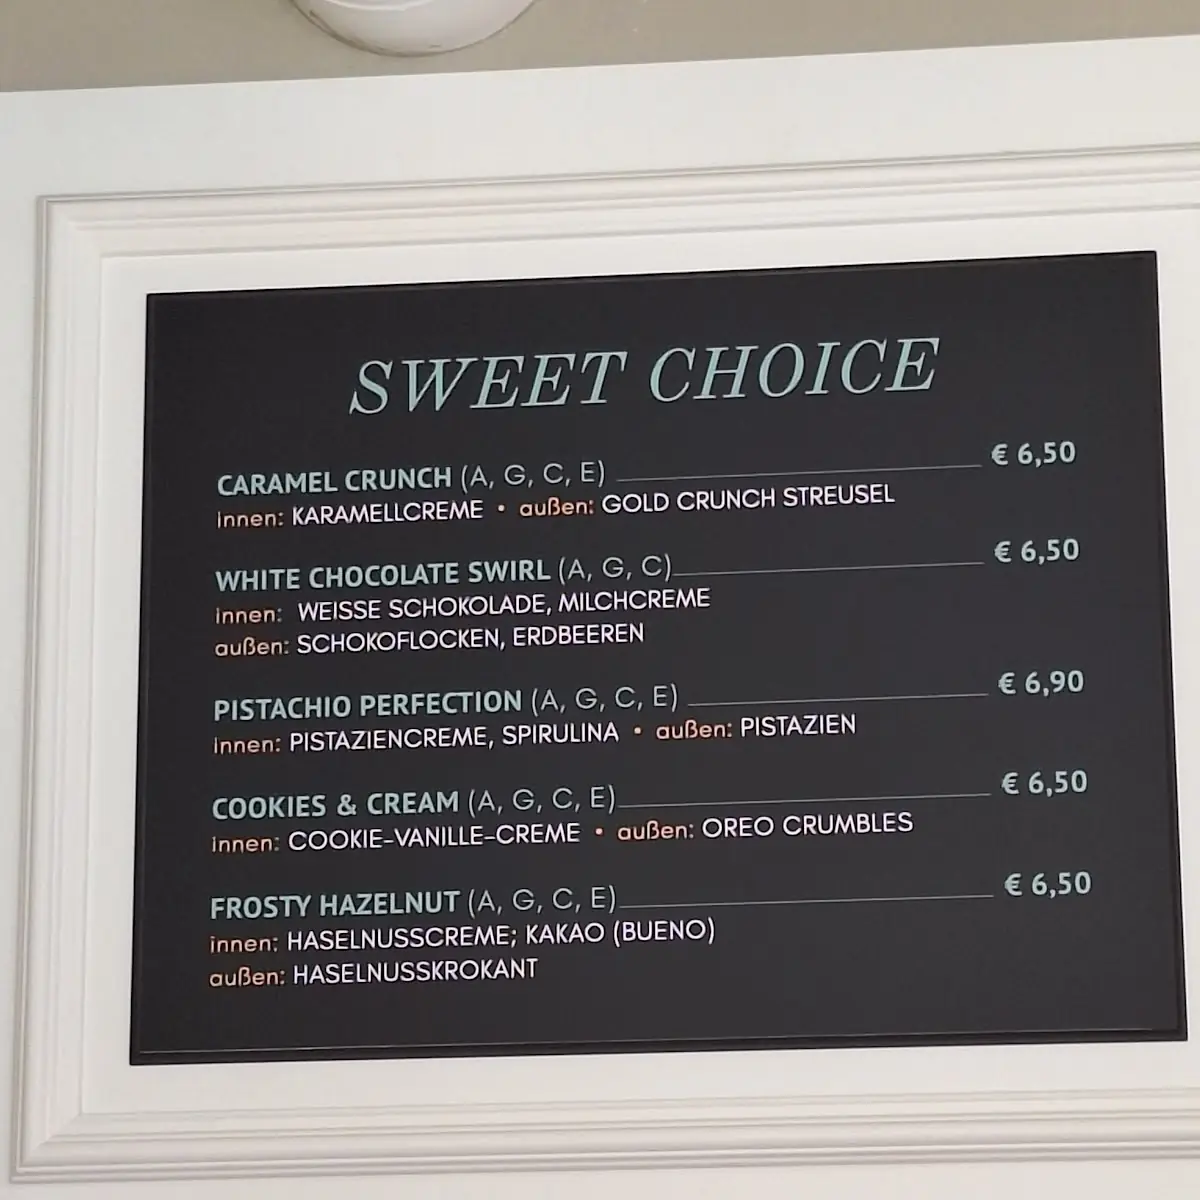 SWEET CHOICE
CARAMEL CRUNCH (A, G, C, E) € 6,50
innen: KARAMELLCREME • außen: GOLD CRUNCH STREUSEL
WHITE CHOCOLATE SWIRL (A, G, C) € 6,50
innen: WEISSE SCHOKOLADE, MILCHCREME
außen: SCHOKOFLOCKEN, ERDBEEREN
PISTACHIO PERFECTION (A, G, C, E) € 6,90
innen: PISTAZIENCREME, SPIRULINA • außen: PISTAZIEN
COOKIES & CREAM (A, G, C, E) € 6,50
innen: COOKIE-VANILLE-CREME • außen: OREO CRUMBLES
FROSTY HAZELNUT (A, G, C, E) € 6,50
innen: HASELNUSSCREME; KAKAO (BUENO)
außen: HASELNUSSKROKANT